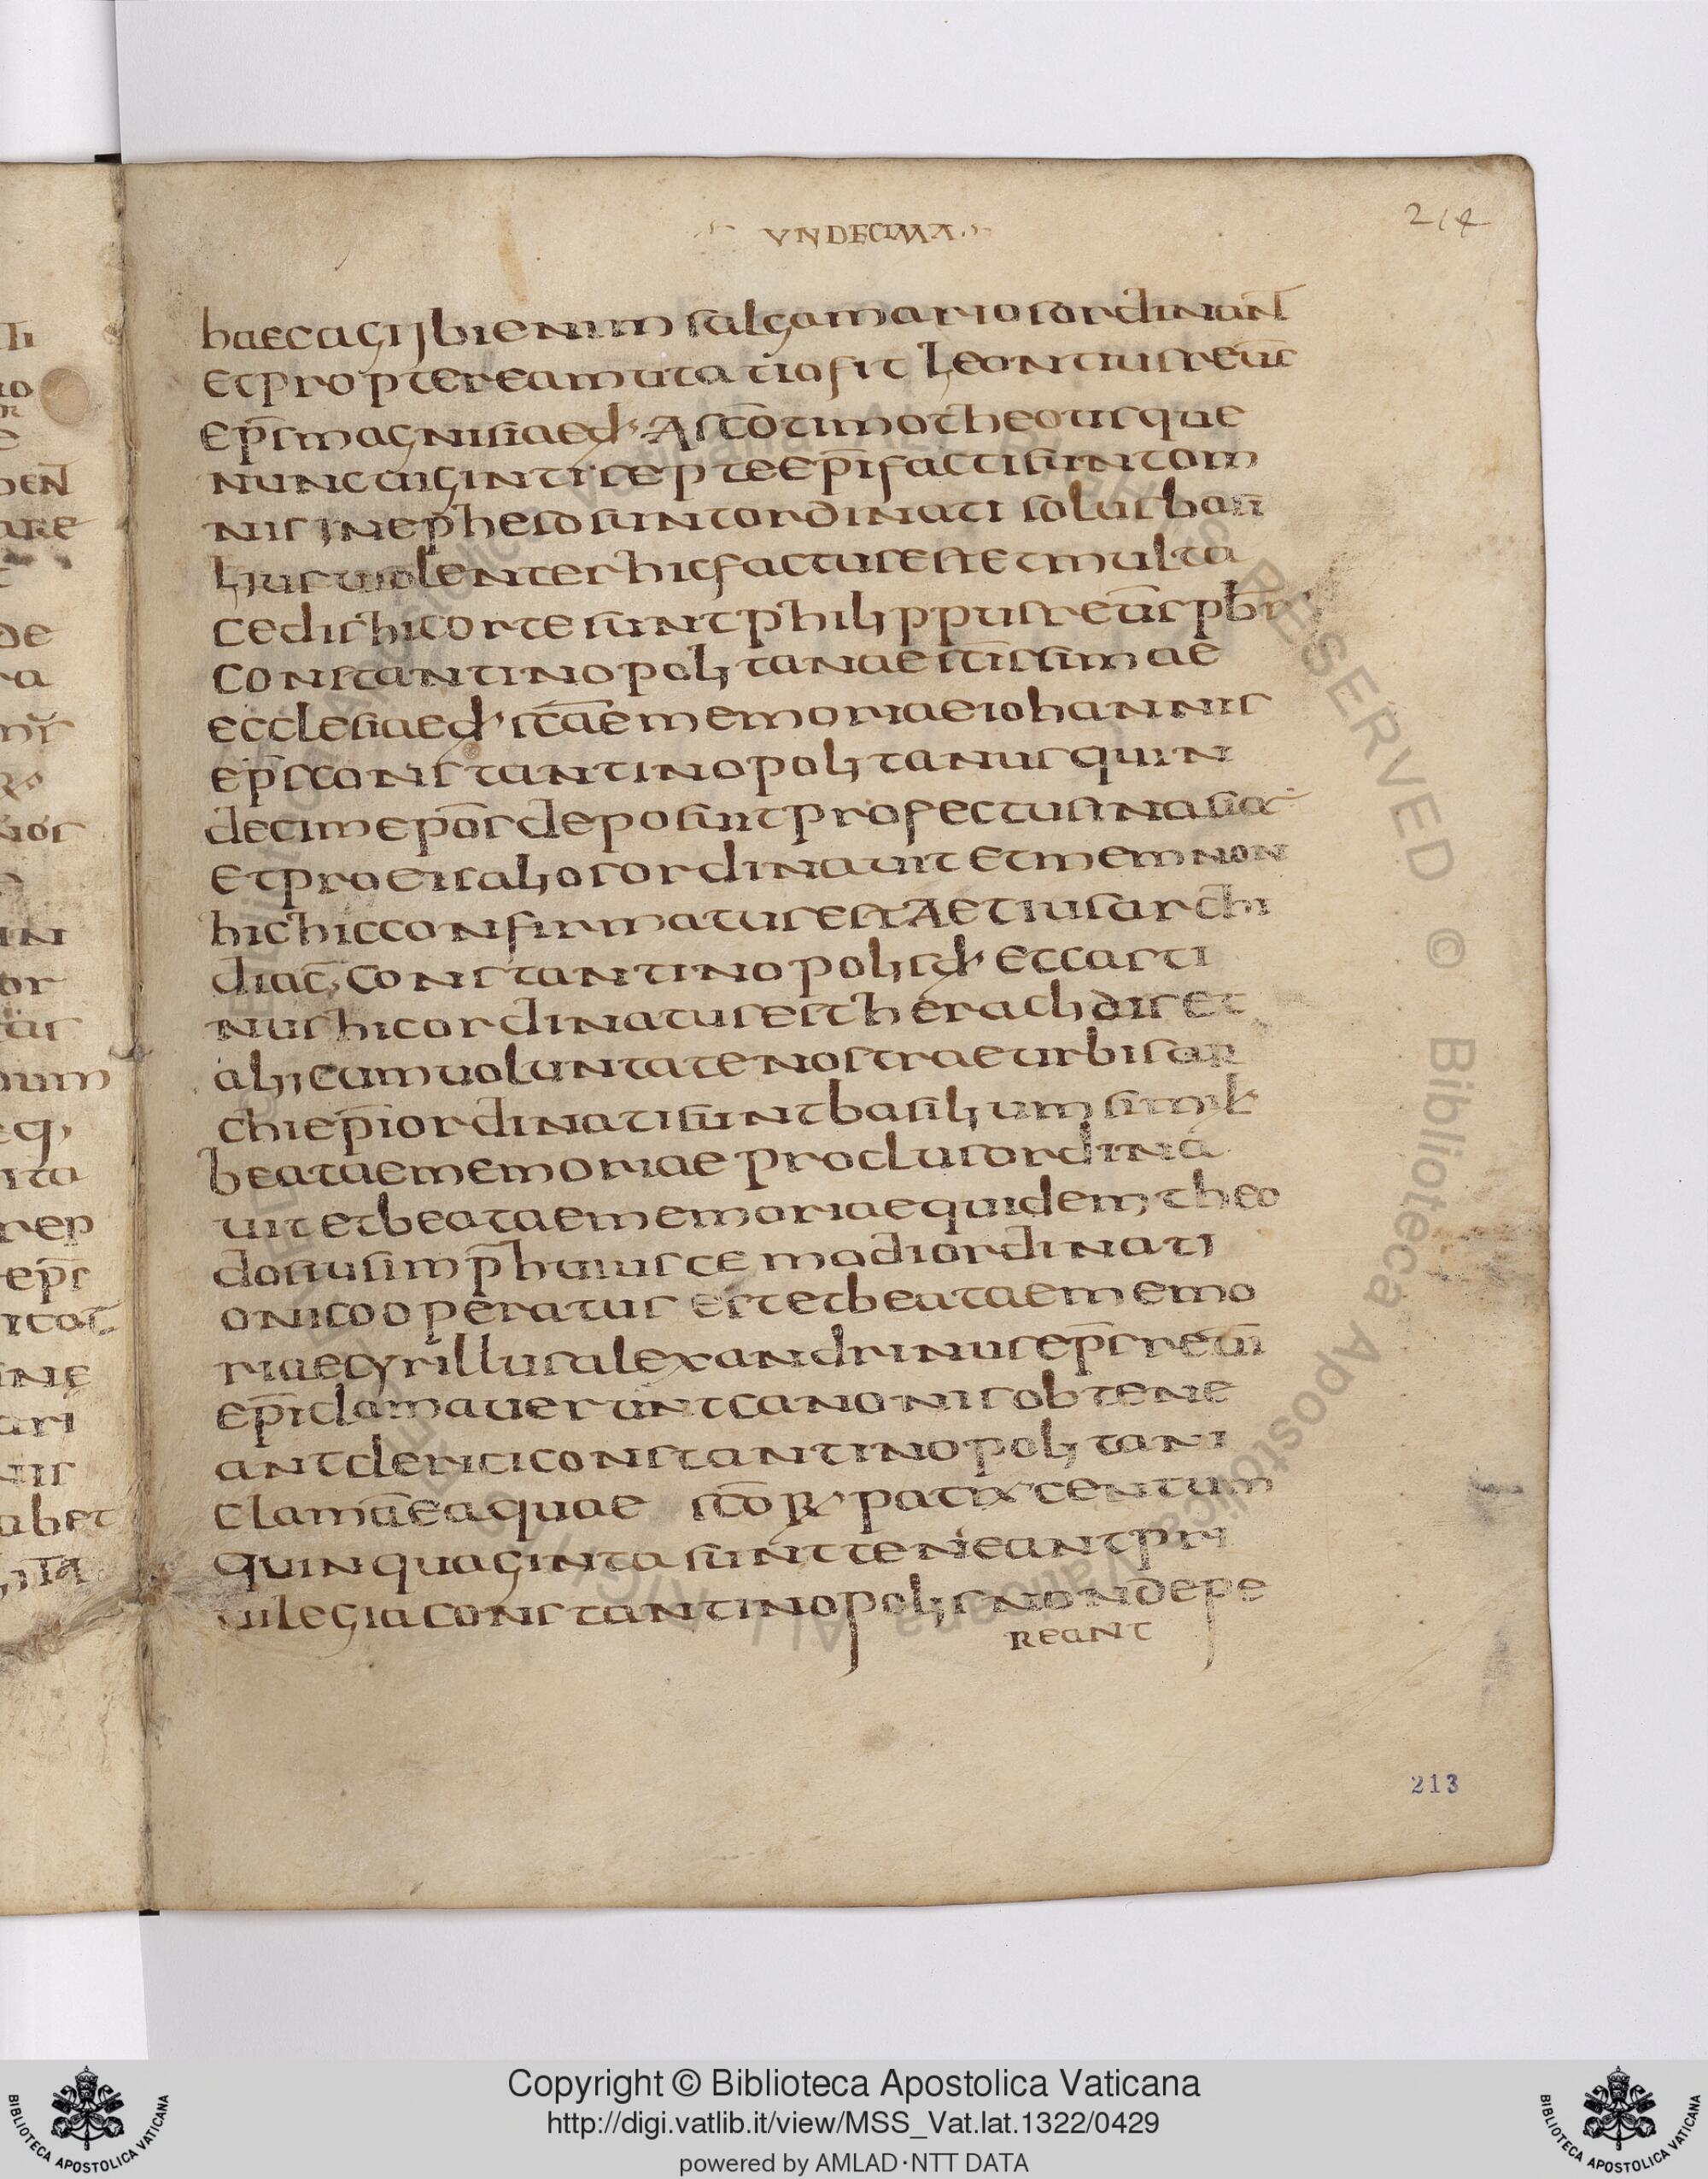 VNDECIMA
214
haec agi ibi enim salgamarios ordinant̄
et propterea mutatio fit Leontius reūs
ep̄s magnisiae d' A sc̄o timotheo usque
nunc uiginti septe ep̄i facti sunt om
nis in epheso sunt ordinati solus basi
lius uiolenter hic factus est et multa
cedis hic orte sunt philippus reūs pb̄r
constantinopolitanae sc̄issimae
ecclesiae d' sc̄ae memoriae iohannis
ep̄s constantinopolitanus quin
decim ep̄os deposuit profectus in asia
et pro eis alios ordinauit et memnon
hic hic confirmatus est Aetius archi
diac̄ constantinopolis d' et casti
nus hic ordinatus est herachdis et
alii cum uoluntate nostrae urbis ar
chiep̄i ordinati sunt basilium simil'
beatae memoriae proclus ordina
uit et beatae memoriae quidem theo
dosius imp̄ huiusce modi ordinati
oni cooperatus est et beatae memo
riae cyrillus alexandrinus ep̄s reūi
ep̄i clamauerunt canonis obtene
ant clerici constantinopolitani
clamā ea quae sc̄oR' patix' centum
quinquaginta sunt teneant pri
uilegia constantinopolis non depe
reant
213
Copyright © Biblioteca Apostolica Vaticana
http://digi.vatlib.it/view/MSS_Vat.lat.1322/0429
powered by AMLAD·NTT DATA